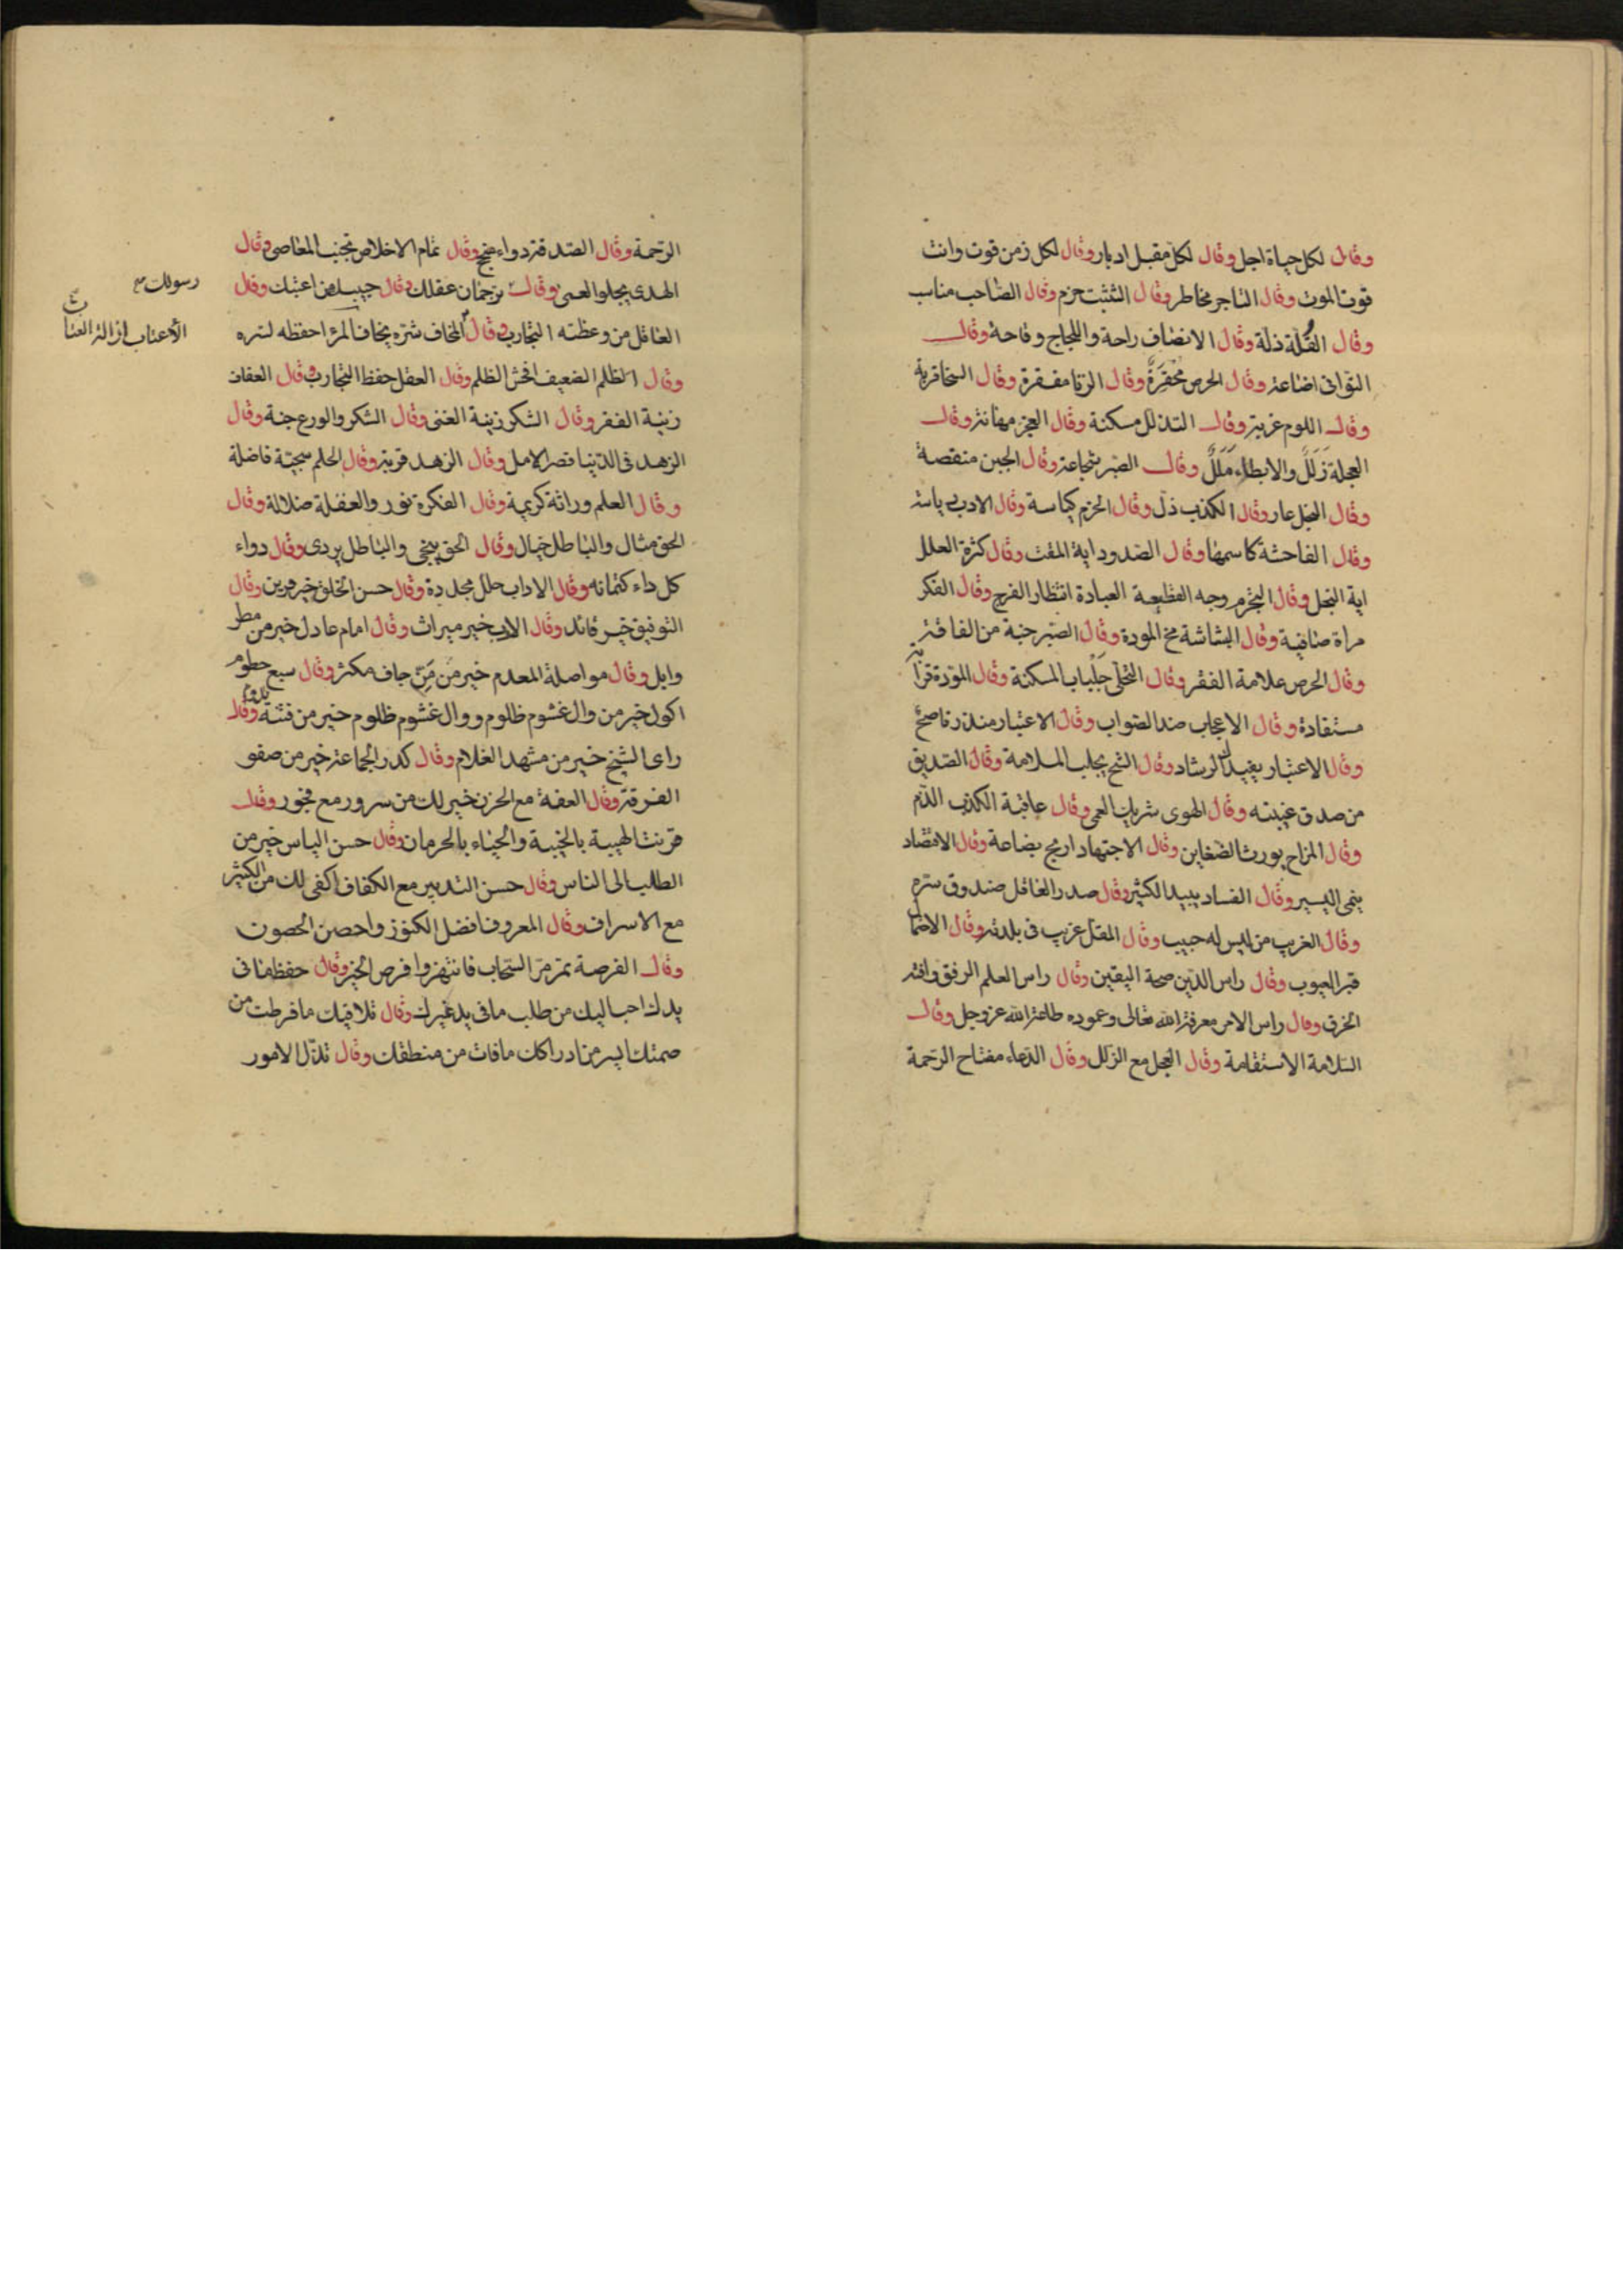 وقال لكل حياة اجل وقال لكل مقبل ادبار وقال لكل زمن قوت وانت
قوت الموت وقال التاجر مخاطر وقال التثبت حزم وقال الصاحب مناسب
وقال القلة ذلة وقال الانصاف راحة واللجاج وقاحة وقال
التوانى اضاعة وقال الحرص محقرة وقال الزنا مفقرة وقال السخا قربة
وقال اللوم غربة وقال التذلل مسكنة وقال العجز مهانة وقال
العجلة زَلَلٌ والابطاء مَلَلٌ وقال الصبر شجاعة وقال الجبن منقصة
وقال البخل عار وقال الكذب ذل وقال الحزم كياسة وقال الادب
وقال الفاحشة كاسمها وقال الصدود اية المقت وقال كثرة العلل
اية البخل وقال وجه العبادة انتظار الفرج وقال الفكر
مراة صافية وقال البشاشة مخ المودة وقال الصبر جنة من الفاقة
وقال الحرص علامة الفقر وقال جلباب المسكنة وقال المودة قرابة
مستفادة وقال الاعجاب ضد الصواب وقال الاعتبار منذر ناصح
وقال الاعتبار يفيدك الرشاد وقال الشح يجلب الملامة وقال الصديق
من صدق غيبته وقال الهوى شريك العمى وقال عاقبة الكذب الذم
وقال المزاح يورث الضغاين وقال الاجتهاد اربح بضاعة وقال الاقتصاد
ينمى اليسير وقال الفساد يبيد الكثير وقال صدر العاقل صندوق سره
وقال الغريب من ليس له حبيب وقال المقل غريب فى بلدته وقال الاحتمال
قبر العيوب وقال راس الدين صحة اليقين وقال راس العلم الرفق وافته
الخرق وقال راس الامر معرفة الله تعالى وعموده طاعة الله عز وجل وقال
السلامة الاستقامة وقال العجل مع الزلل وقال الدعاء مفتاح الرحمة
الرحمة وقال الصدقة دواء منجح وقال تمام الاخلاص تجنب المعاصى وقال
الهدى يجلوا العمى وقال ترجمان عقلك وقال حبيبك من اعتبك وقال
رسولك
العاقل من وعظته التجارب وقال المخاف شره يخاف المرء احفظه لسره
الاعتاب ازالة العتاب
وقال الظلم الضعيف افحش الظلم وقال العقل حفظ التجارب وقال العفاف
زينة الفقر وقال الشكر زينة الغنى وقال الشكر والورع جنة وقال
الزهد فى الدنيا قصر الامل وقال الزهد قربة وقال الحلم سجية فاضلة
وقال العلم وراثة كريمة وقال الفكرة نور والغفلة ضلالة وقال
الحق مثال والباطل خبال وقال الحق ينجى والباطل يردى وقال دواء
كل داء كتمانه وقال الاداب حلل مجددة وقال حسن الخلق خير قرين وقال
التوفيق خير قائد وقال الادب خير ميراث وقال امام عادل خير من مطر
وابل وقال مواصلة المعدم خير من مَنِّ جاف مكثر وقال سبع حطوم
اكول خير من وال غشوم ظلوم ووال غشوم ظلوم خير من فتنة تدوم وقال
راى الشيخ خير من مشهد الغلام وقال كدر الجماعة خير من صفو
الفرقة وقال العفة مع الحزن خير لك من سرور مع فجور وقال
قرنت الهيبة بالخيبة والحياء بالحرمان وقال حسن الياس خير من
الطلب الى الناس وقال حسن التدبير مع الكفاف اكفى لك من الكثير
مع الاسراف وقال المعروف افضل الكنوز واحصن الحصون
وقال الفرصة تمر مر السحاب فانتهزوا فرص الخير وقال حفظ ما فى
يدك احب اليك من طلب ما فى يد غيرك وقال تلافيك ما فرطت من
صمتك ايسر من ادراكك ما فات من منطقك وقال تذل الامور